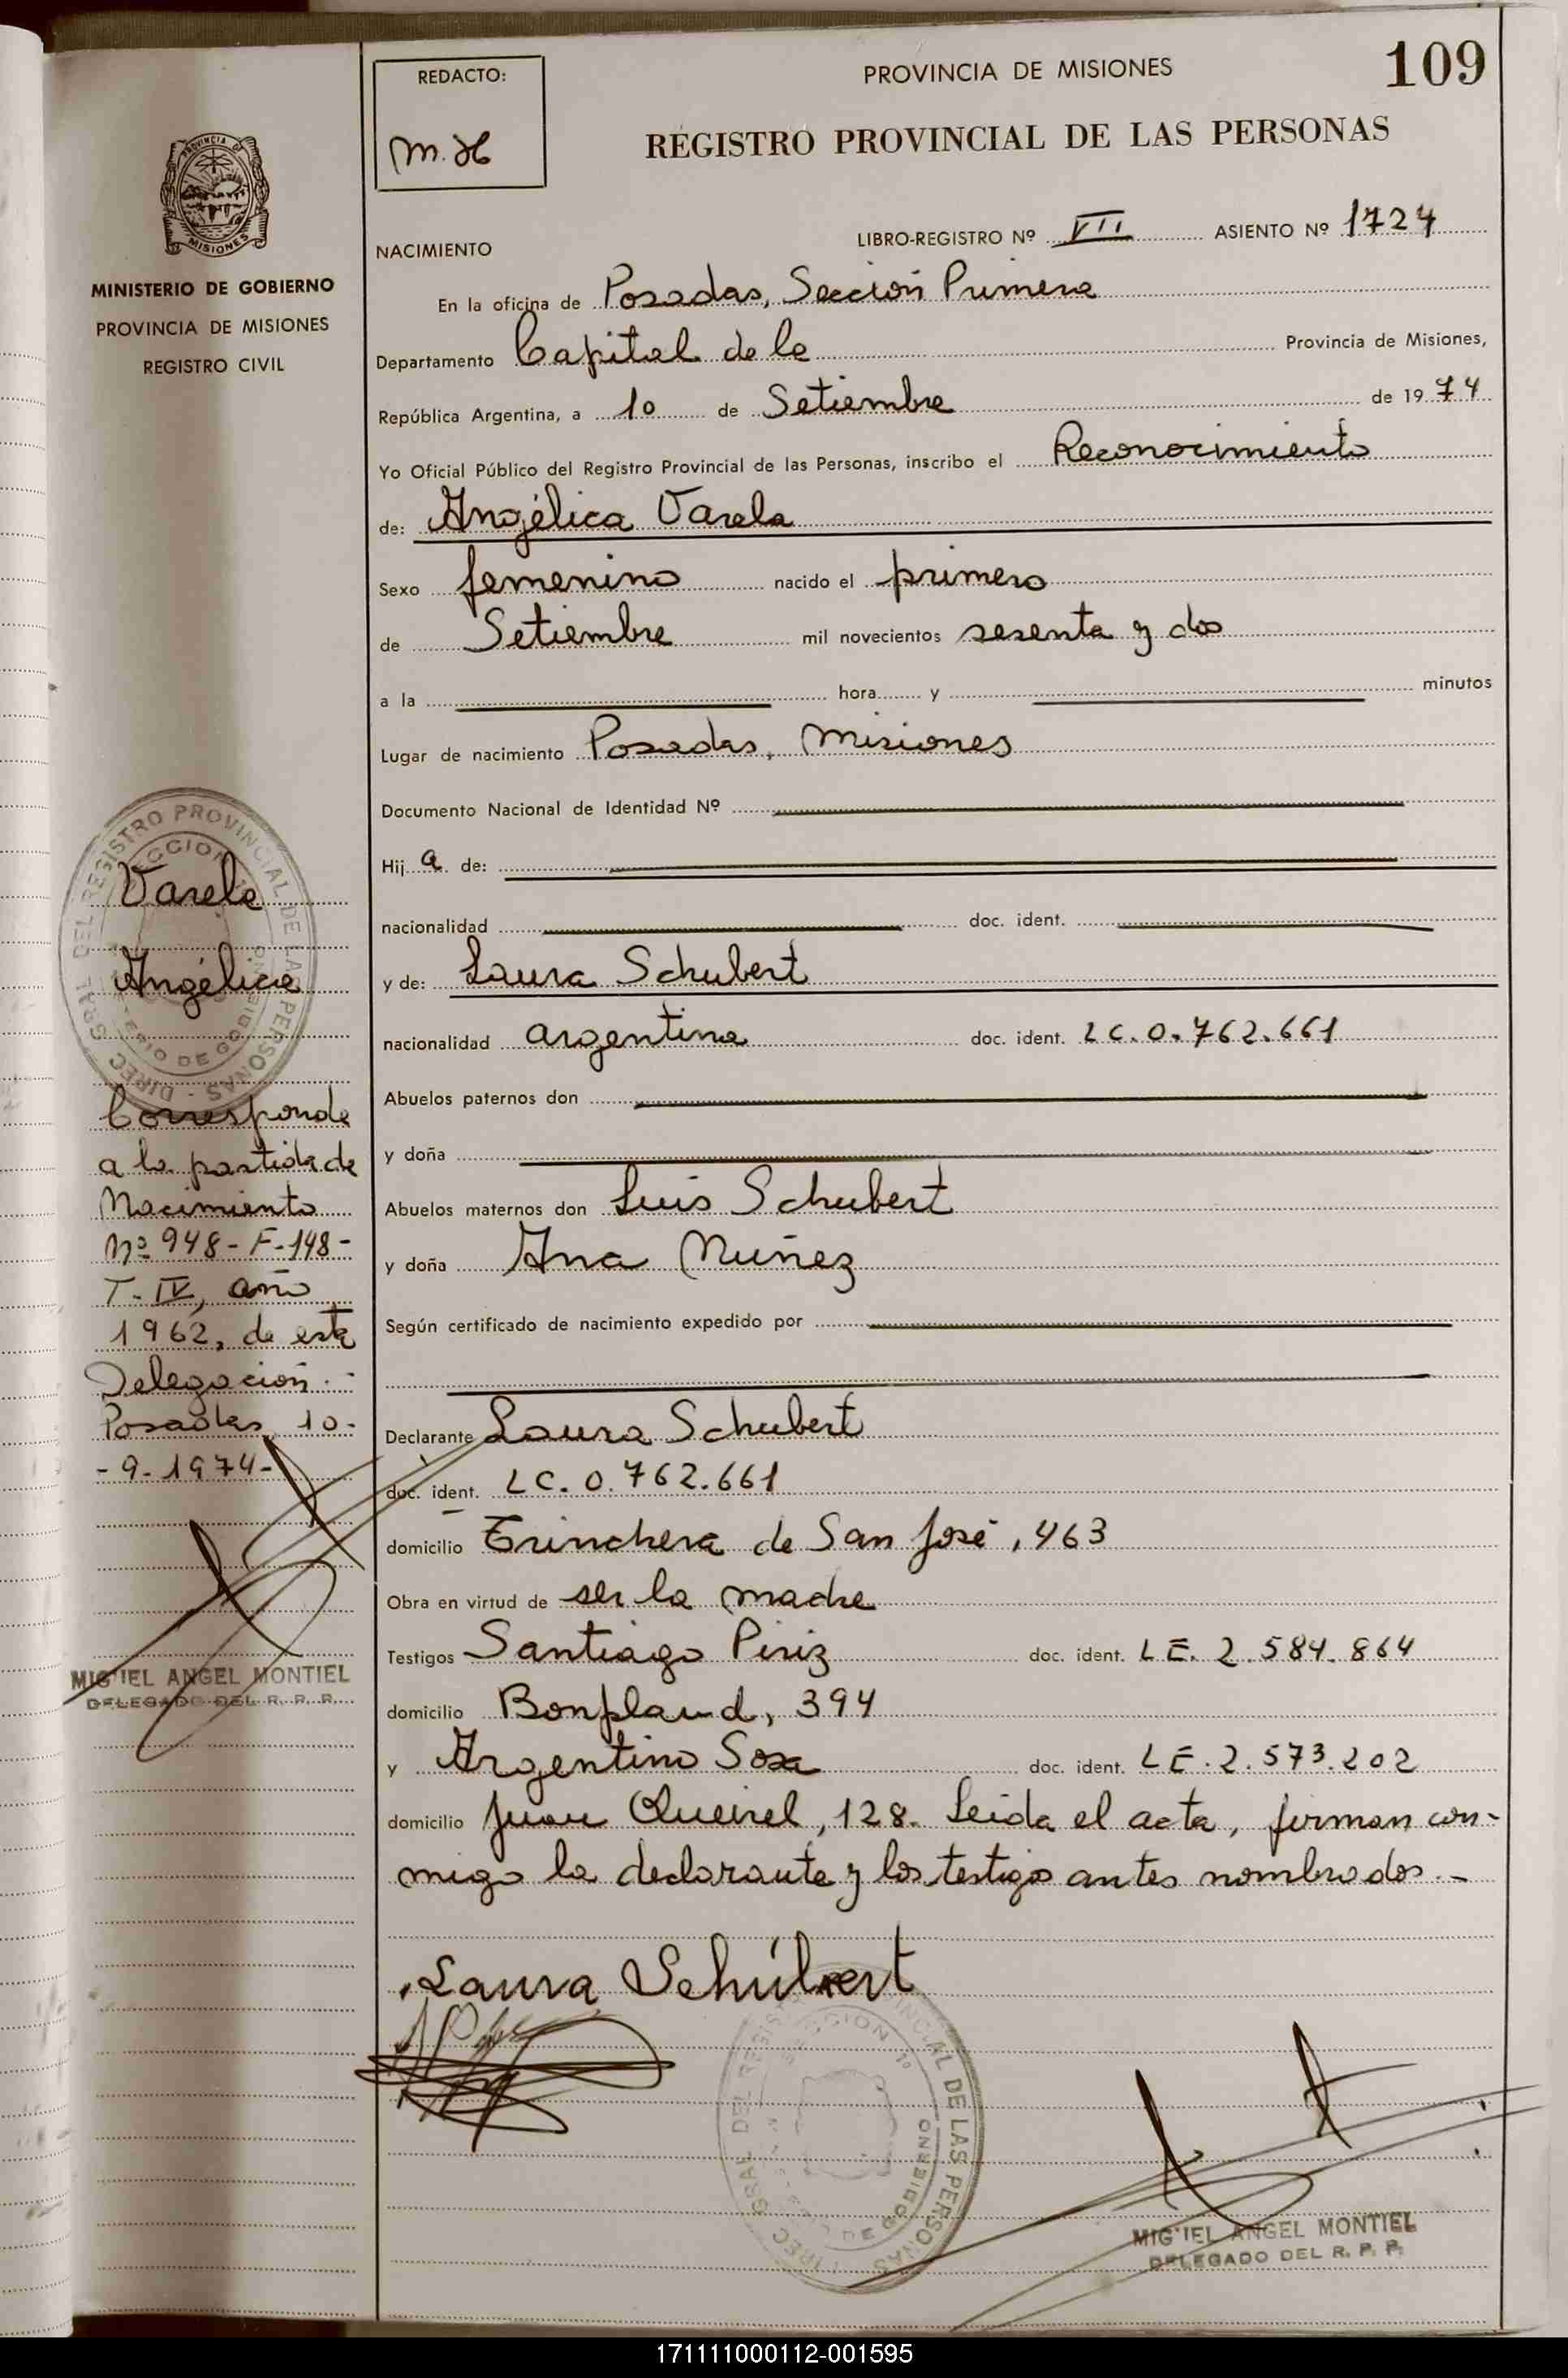 REDACTO:
M.H
PROVINCIA DE MISIONES
109
REGISTRO PROVINCIAL DE LAS PERSONAS
PROVINCIA DE
MISIONES
MINISTERIO DE GOBIERNO
PROVINCIA DE MISIONES
REGISTRO CIVIL
NACIMIENTO
LIBRO-REGISTRO Nº VII ASIENTO Nº 1724
En la oficina de Posadas, Sección Primera
Departamento Capital de la Provincia de Misiones,
República Argentina, a 10 de Setiembre de 1974
Yo Oficial Público del Registro Provincial de las Personas, inscribo el Reconocimiento
de: Angélica Varela
Sexo femenino nacido el primero
de Setiembre mil novecientos sesenta y dos
a la hora y minutos
Lugar de nacimiento Posadas, Misiones
Documento Nacional de Identidad Nº
Hija de:
nacionalidad doc. ident.
y de: Laura Schubert
nacionalidad argentina doc. ident. LC. 0.762.661
Abuelos paternos don
y doña
Abuelos maternos don Luis Schubert
y doña Ana Nuñez
Según certificado de nacimiento expedido por
Declarante Laura Schubert
doc. ident. LC. 0.762.661
domicilio Trinchera de San José, 463
Obra en virtud de ser la madre
Testigos Santiago Piriz doc. ident. LE. 2.584.864
domicilio Bonpland, 394
y Argentino Sosa doc. ident. LE. 2.573.202
domicilio Juan Queirel, 128. Leida el acta, firman con-
migo la declarante y los testigos antes nombrados.-
Laura Schúbert
MIGUEL ANGEL MONTIEL
DELEGADO DEL R. P. P.
Varela
Angélica
Corresponde
a la partida de
Nacimiento
Nº 948 - F-148-
T-IV, año
1962, de esta
Delegación.-
Posadas, 10-
-9-1974-
MIGUEL ANGEL MONTIEL
DELEGADO DEL R. P. P.
DIREC. GRAL. DEL REGISTRO PROVINCIAL DE LAS PERSONAS
171111000112-001595